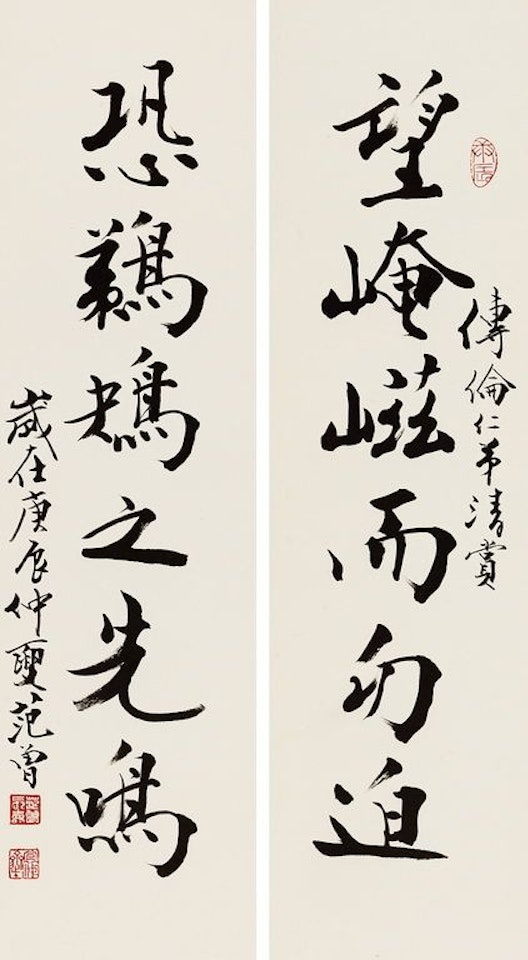 傳倫仁弟清賞
望崦嵫而勿迫
恐鵜鴂之先鳴
歲在庚辰仲夏范曾